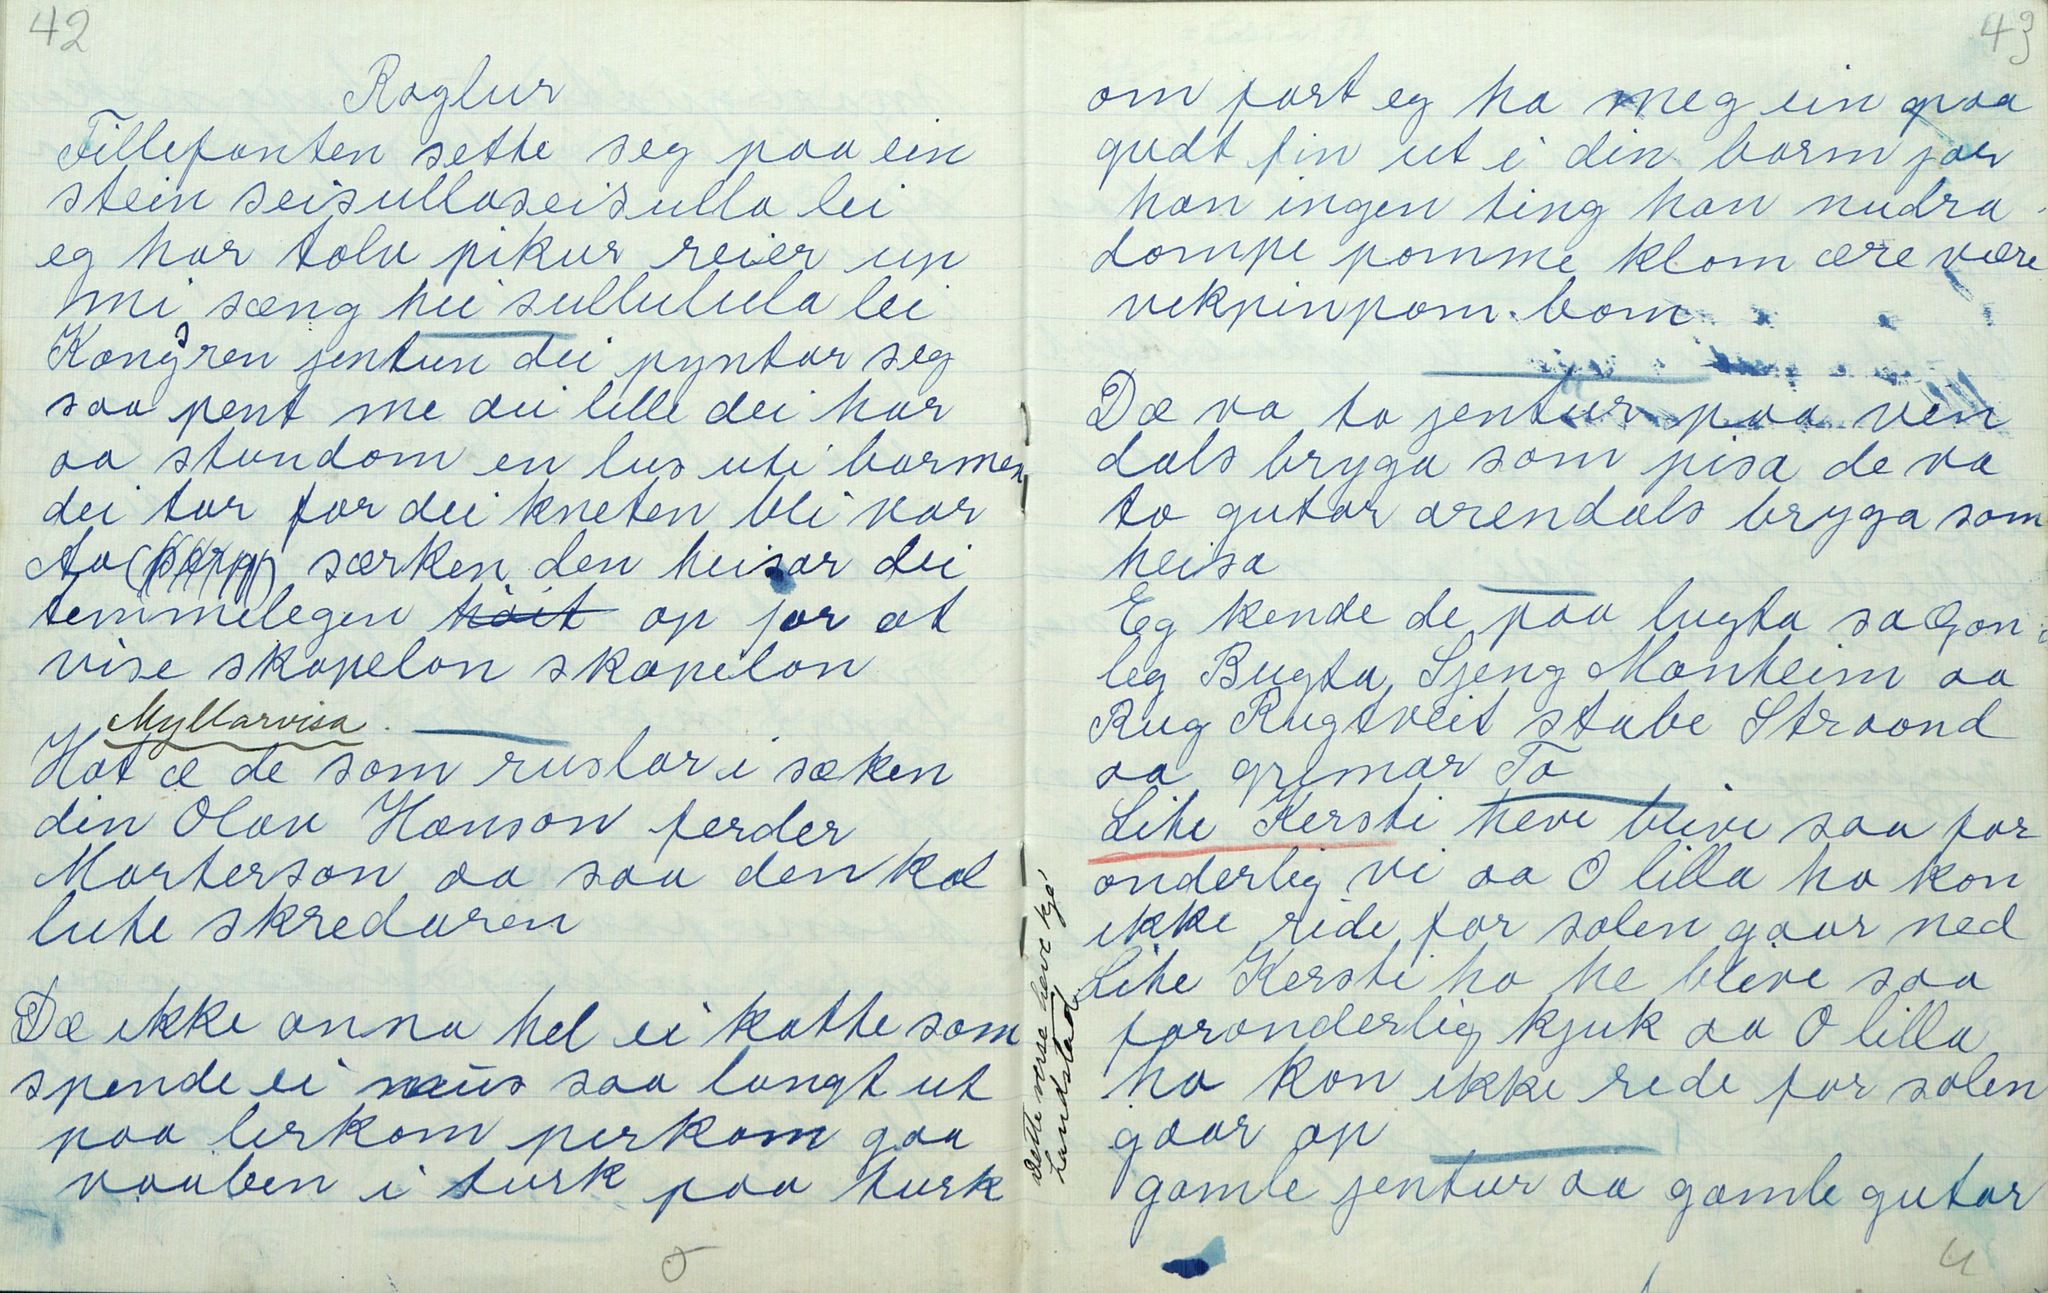 42
Roglur
Fillefanten sette seg paa ein
stein seisullaseisulla lei
eg har tolv pikur reier up
mi sæng hei sullulula lei
Kongsren jentun dei pyntar seg
saa pent me dei lille dei har
aa stundom en lus uti barmen
dei tar for dei kneten bli var
Aa særken den heisar dei
temmelegen høit op for at
vise skapelon skapelon
Myllarvisa
Hot æ de som ruslar i sæken
din Olav Hanson ferder
Marterson aa saa den kal
lute skredaren
Dæ ikke anna hel ei katte som
spende ei mus saa langt ut
paa lerkom perkom gaa
vaaben i turk paa turk
5
43
om fort eg ha meg ein paa
gudt fin ut i din barm for
han ingen ting han nudra
dompe pomme klom ære være
vekpinpom bom
Dæ va to jentur paa ven
dals bryga som pisa de va
to gutar arendals bryga som
heisa
Eg kende de paa lugta sa Gon
leg Bugta Sjeng Manheim aa
Rug Rugtveit stabe Straond
aa gremar Ta
Lite Kersti heve blive saa for
onderleg vi aa O lilla ho kon
ikke ride for solen gaar ned
Lite Kersti ho he bleve saa
foranderlig kjuk aa O lilla
ho kon ikke rede for solen
gaar op
gamle jentur aa gamle gutar
Dette verse heve kje'
Landstad.
4